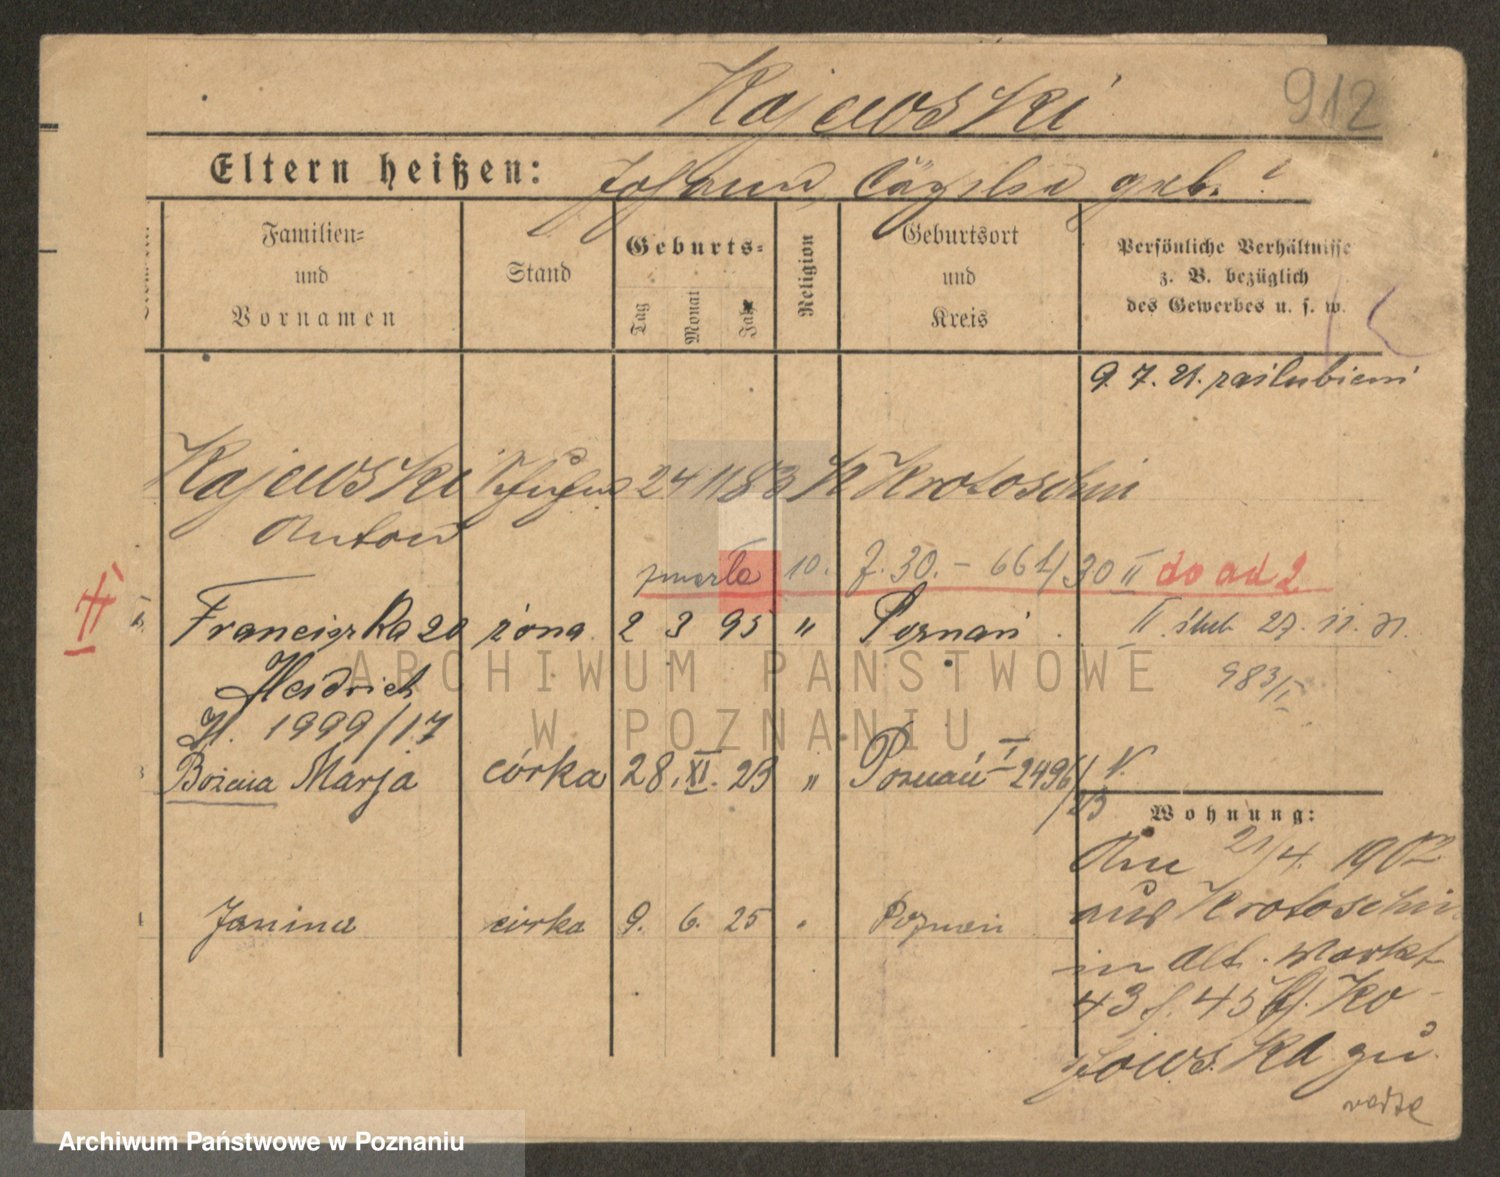 912
Kajewski
Eltern heißen: Johann, Cäzilia geb. ?
Familien=
und
Vornamen
Stand
Geburts=
Tag
Monat
Jahr
Religion
Geburtsort
und
Kreis
Persönliche Verhältnisse
z. B. bezüglich
des Gewerbes u. s. w.
9. 7. 21. zaślubieni
Kajewski 24 11 83 K Krotoschin
Anton
zmarła 10. 7. 30. – 661/30 II do ad 2
II
Franciszka zd żona 2 3 95 " Poznań II ślub 27. 11. 31.
Heidrich 983/I
H. 1999/17
Bożena Marja córka 28. XI. 23 " Poznań I – 2496/23 V.
Wohnung:
Janina córka 9. 6. 25 Poznań
Am 21/4. 1902
aus Krotoschin
in Alt. Markt
43 f. 45 Ko-
jowska zu
ARCHIWUM PAŃSTWOWE
W POZNANIU
Archiwum Państwowe w Poznaniu